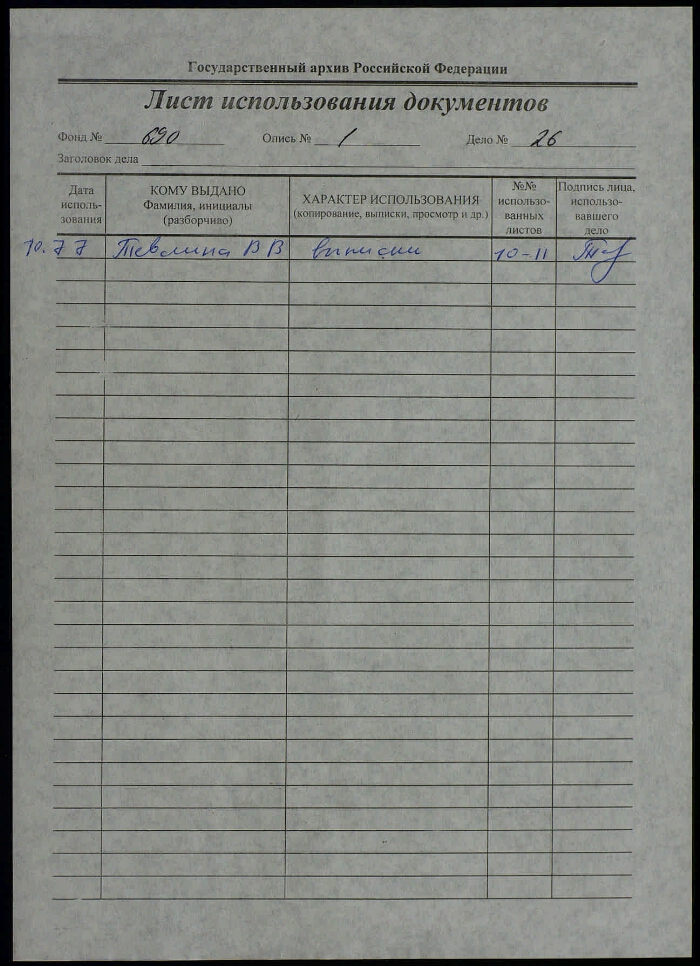 Государственный архив Российской Федерации
Лист использования документов
Фонд № 690 Опись № 1 Дело № 26
Заголовок дела
Дата использования
КОМУ ВЫДАНО
Фамилия, инициалы
(разборчиво)
ХАРАКТЕР ИСПОЛЬЗОВАНИЯ
(копирование, выписки, просмотр и др.)
№№
использо-
ванных
листов
Подпись лица,
использо-
вавшего
дело
10.77 Тевлина В В выписки 10-11